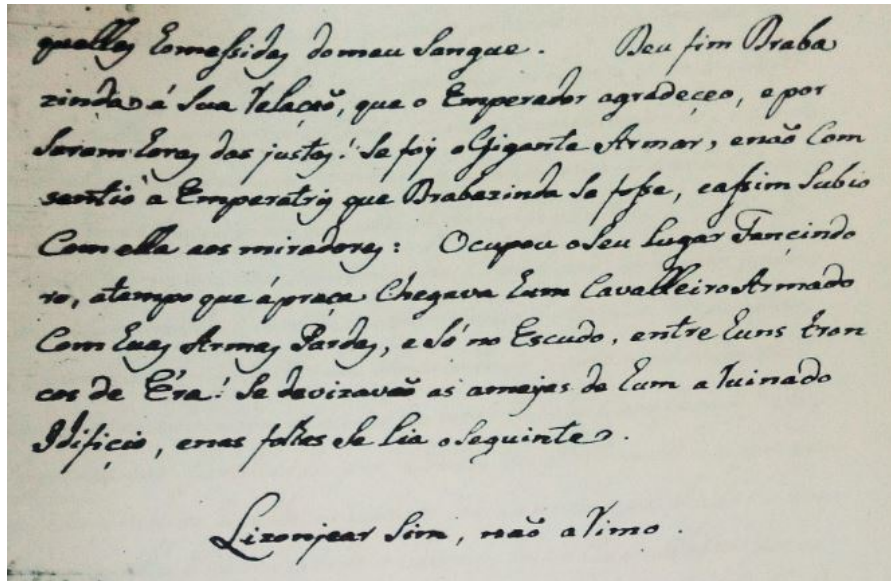 quellas homessidas do meu Sangue. Deu fim Braba
zinda á Sua Relacaõ, que o Emperador agradeçeo, e por
Serem horas das justas: Se foy o Gigante Armar, e naõ Com
sentio a Emperatriz que Brabazinda Se fosse, e assim Subio
Com ella aos miradores: Ocupou o Seu lugar Tancindo
ro, a tempo que á praça Chegava hum Cavalleiro Armado
Com huas Armas Pardas, e Só no Escudo, entre huns tron
cos de Éra: Se devizavaõ as ameyas de hum a Ruinado
Idificio, e nas folhes Se lia o Seguinte.
Lizonjear Sim, naõ a Rimo.